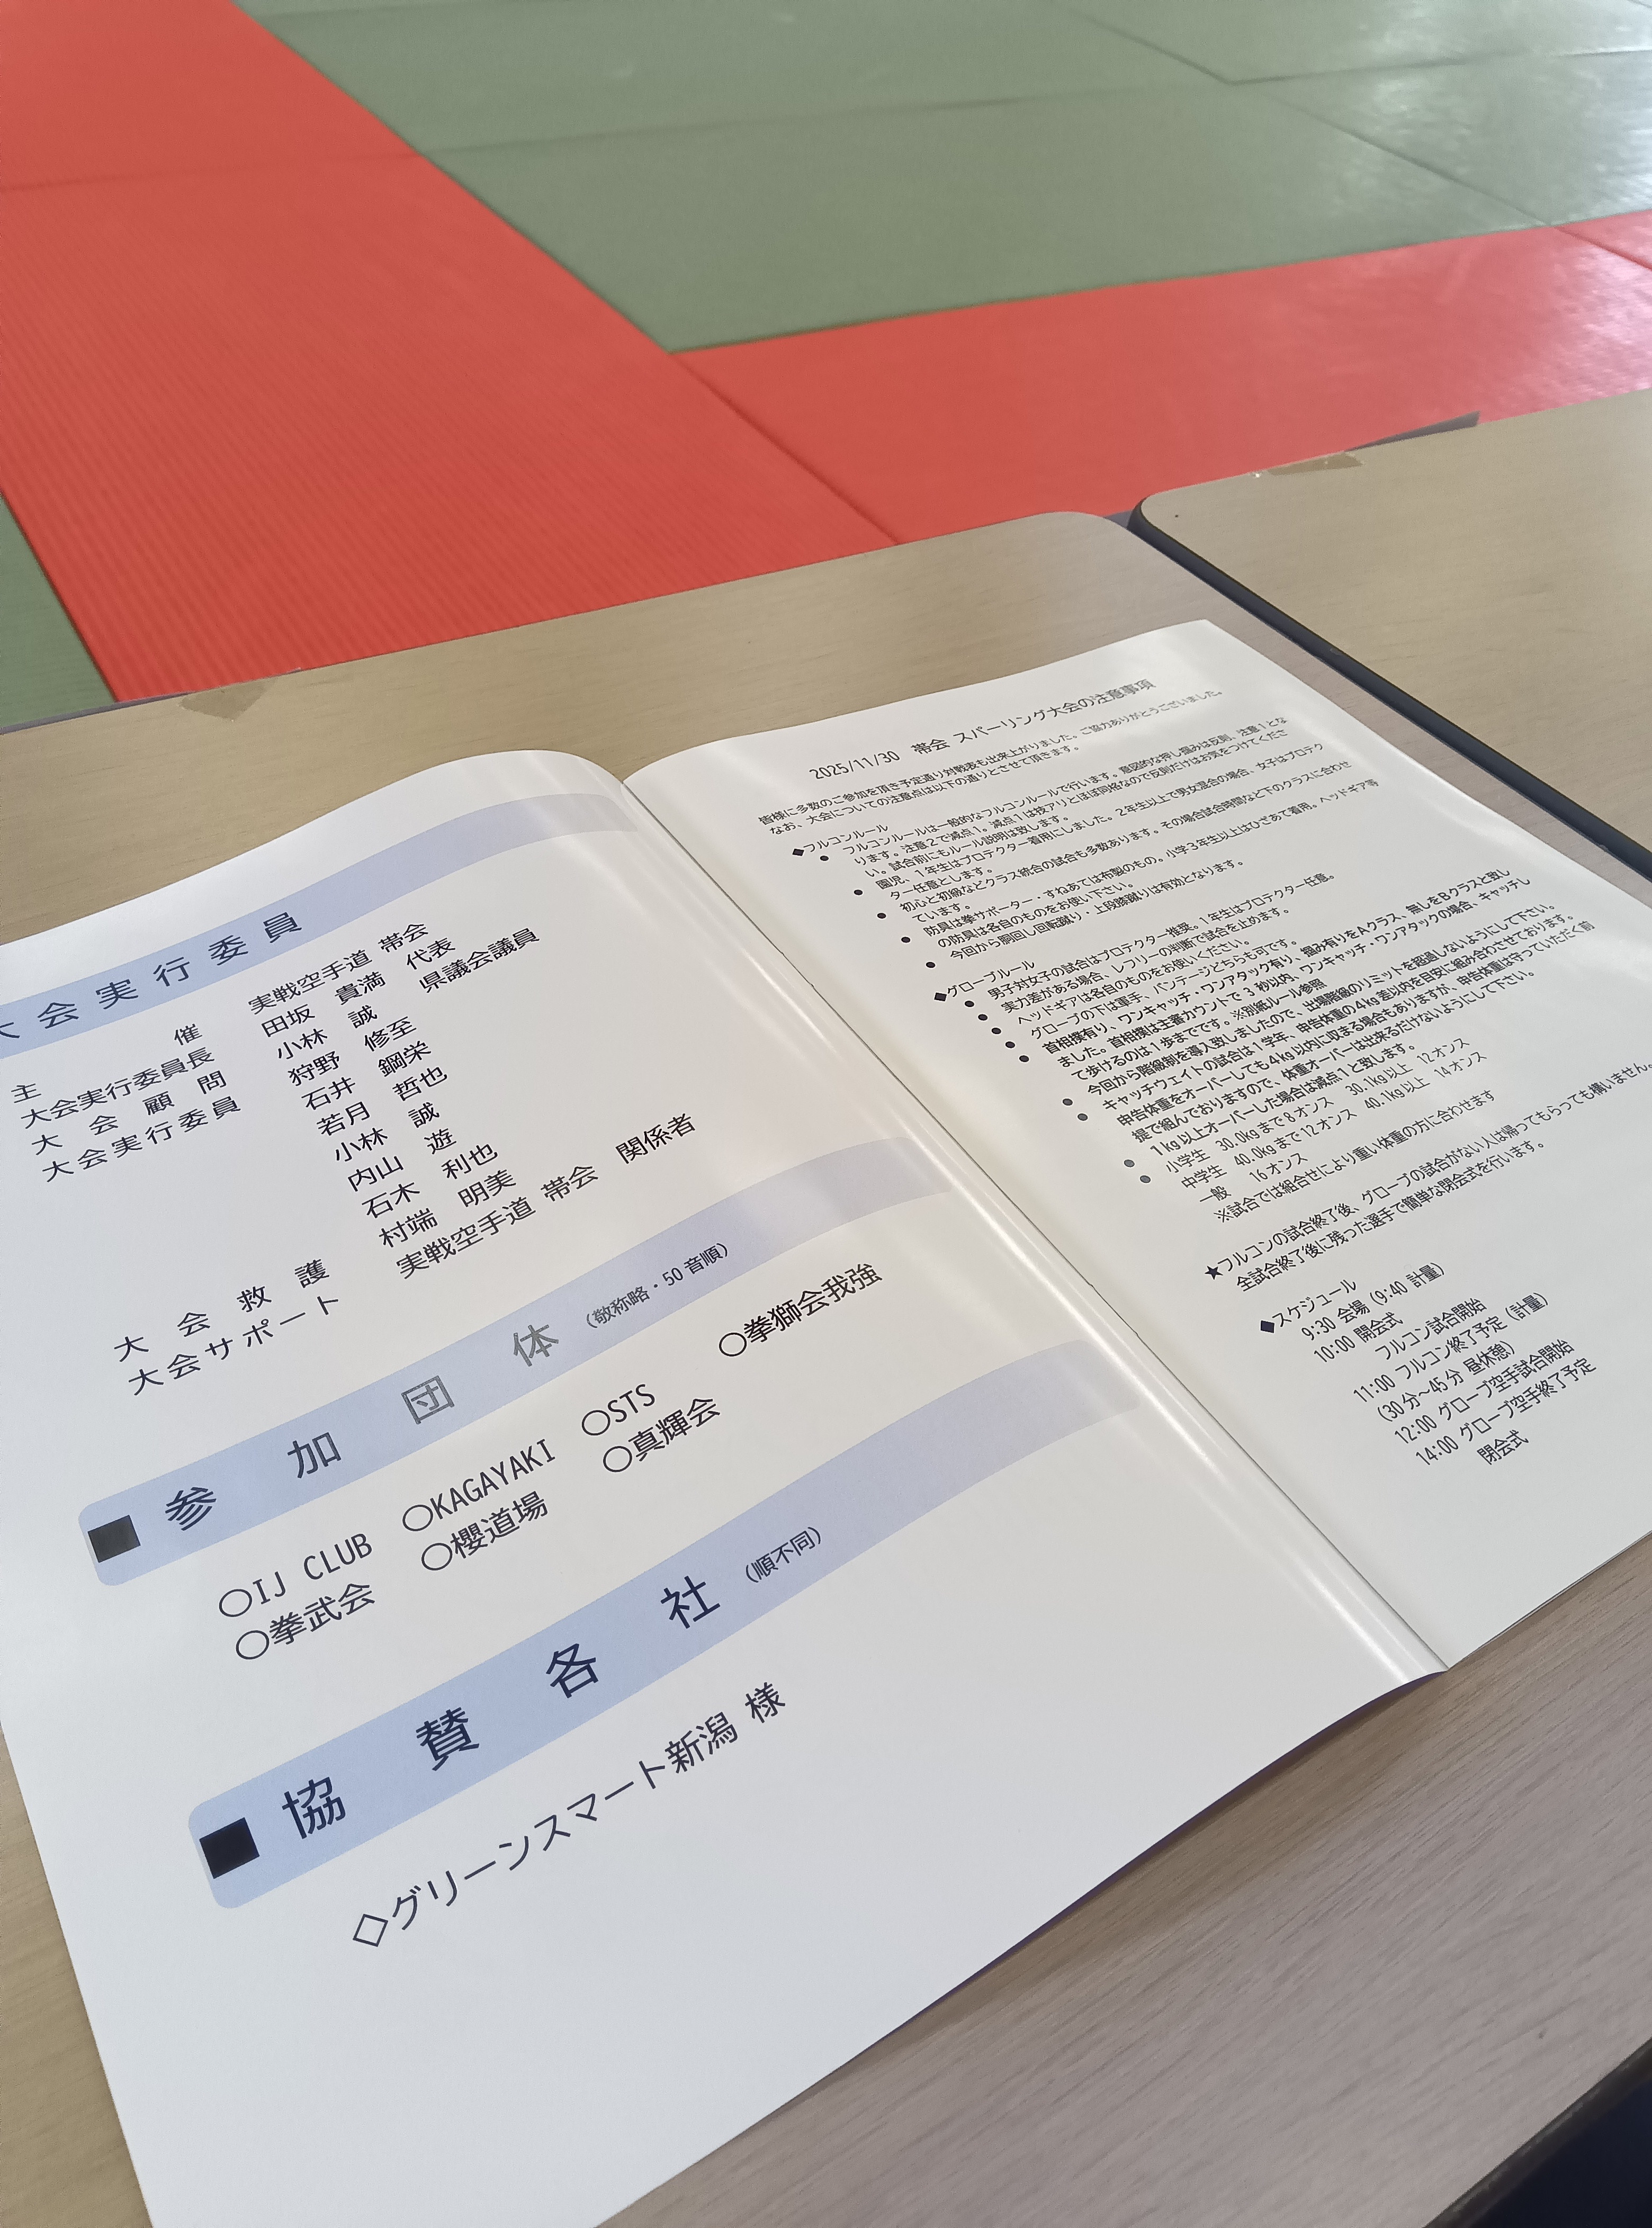 大会実行委員
主 催 実戦空手道 帯会
大会実行委員長 田坂 貴満 代表
大会顧問 小林 誠 県議会議員
大会実行委員 狩野 修至
石井 鋼栄
若月 哲也
小林 誠
内山 遊
石木 利也
大会救護 村端 明美
大会サポート 実戦空手道 帯会 関係者
■ 参加団体 (敬称略・50音順)
○IJ CLUB ○KAGAYAKI ○STS ○拳獅会我強
○拳武会 ○櫻道場 ○真輝会
■ 協賛各社 (順不同)
◇グリーンスマート新潟 様
2025/11/30 帯会 スパーリング大会の注意事項
皆様に多数のご参加を頂き予定通り対戦表も出来上がりました。ご協力ありがとうございました。
なお、大会についての注意点は以下の通りとさせて頂きます。
◆フルコンルール
● フルコンルールは一般的なフルコンルールで行います。意図的な押し掴みは反則、注意1とな
ります。注意2で減点1。減点1は技アリとほぼ同格なので反則だけはお気をつけてくださ
い。試合前にもルール説明は致します。
● 園児、1年生はプロテクター着用にしました。2年生以上で男女混合の場合、女子はプロテク
ター任意とします。
● 初心と初級などクラス統合の試合も多数あります。その場合試合時間など下のクラスに合わせ
ています。
● 防具は拳サポーター・すねあては布製のもの。小学3年生以上はひざあて着用。ヘッドギア等
の防具は各自のものをお使い下さい。
● 今回から胴回し回転蹴り・上段膝蹴りは有効となります。
◆グローブルール
● 男子対女子の試合はプロテクター推奨。1年生はプロテクター任意。
● 実力差がある場合、レフリーの判断で試合を止めます。
● ヘッドギアは各自のものをお使いください。
● グローブの下は軍手、バンテージどちらも可です。
● 首相撲有り、ワンキャッチ・ワンアタック有り、掴み有りをAクラス、無しをBクラスと致し
ました。首相撲は主審カウントで3秒以内、ワンキャッチ・ワンアタックの場合、キャッチし
て歩けるのは1歩までです。※別紙ルール参照
● 今回から階級制を導入致しましたので、出場階級のリミットを超過しないようにして下さい。
● キャッチウェイトの試合は1学年、申告体重の4kg差以内を目安に組み合わさせております。
申告体重をオーバーしても4kg以内に収まる場合もありますが、申告体重は守っていただく前
提で組んでおりますので、体重オーバーは出来るだけないようにして下さい。
1kg以上オーバーした場合は減点1と致します。
● 小学生 30.0kgまで8オンス 30.1kg以上 12オンス
● 中学生 40.0kgまで12オンス 40.1kg以上 14オンス
一般 16オンス
※試合では組合せにより重い体重の方に合わせます
★フルコンの試合終了後、グローブの試合がない人は帰ってもらっても構いません。
全試合終了後に残った選手で簡単な閉会式を行います。
◆スケジュール
9:30 会場 (9:40 計量)
10:00 開会式
フルコン試合開始
11:00 フルコン終了予定 (計量)
(30分～45分 昼休憩)
12:00 グローブ空手試合開始
14:00 グローブ空手終了予定
閉会式